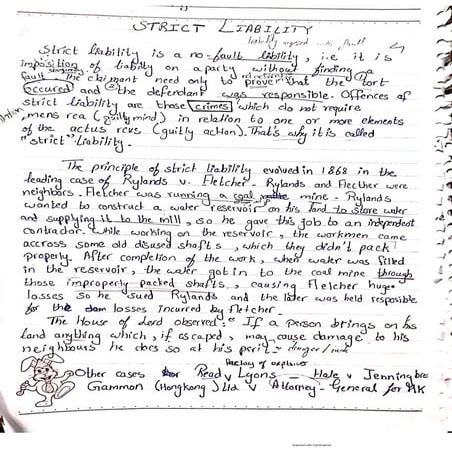 STRICT LIABILITY
liability imposed with fault
Strict liability is a no-fault liability, i.e it is
imposition of liability on a party without finding a
fault. The claimant need only to prove that the tort
occured and the defendant was responsible. Offences of
strict liability are those crimes which do not require
mens rea (guilty mind) in relation to one or more elements
of the actus reus (guilty action). That's why it is called
"strict" liability.
The principle of strict liability evolved in 1868 in the
leading case of Rylands v. Fletcher. Rylands and Flecther were
neighbors. Fletcher was running a coal mine. Rylands
wanted to construct a water reservoir on his land to store water
and supplying it to the mill, so he gave this job to an independent
contrador. While working on the reservoir, the workmen came
accross some old disused shafts, which they didn't pack
properly. After completion of the work, when water was filled
in the reservoir, the water got in to the coal mine through
those improperly packed shafts, causing Fletcher huge
losses so he sued Rylands and the later was held resposible
for the losses incurred by Fletcher.
The House of Lord observed: If a person brings on his
land anything which, if escaped, may cause damage to his
neighbours he does so at his peril. danger / risk
factory of explosive
Other cases Read v Lyons - Hale v Jennings bros
Gammon (Hongkong) Ltd v Attorney-General for HK
Scanned with CamScanner